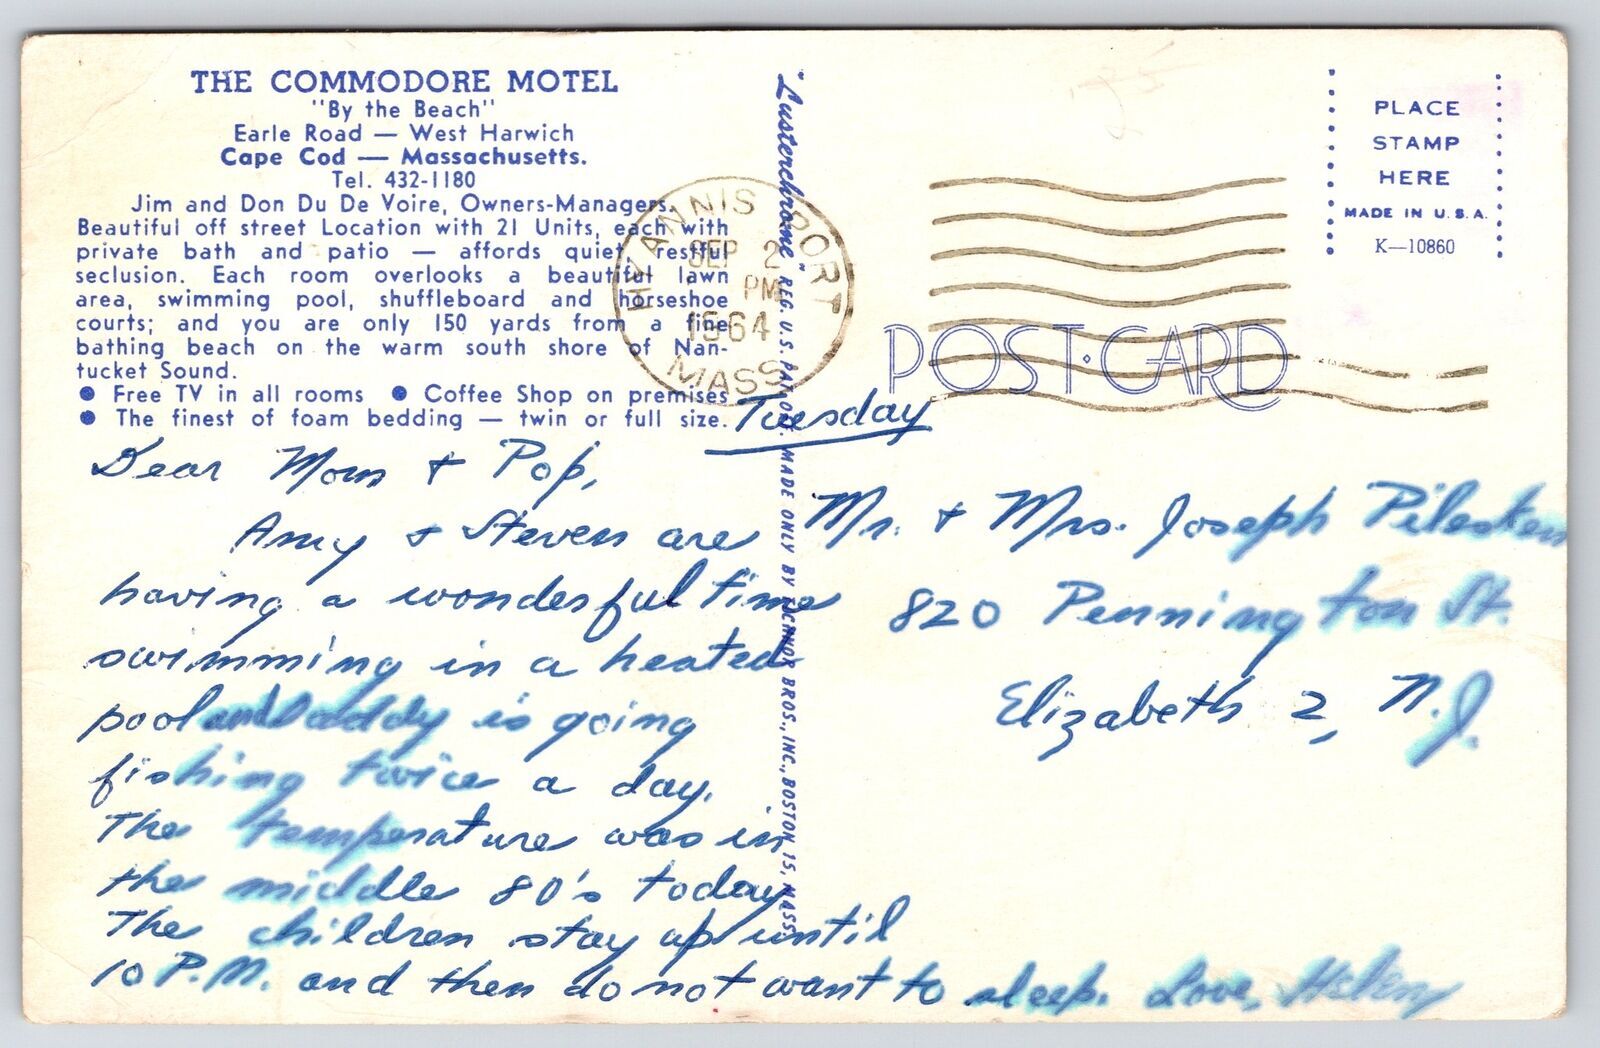 THE COMMODORE MOTEL
"By the Beach"
Earle Road — West Harwich
Cape Cod — Massachusetts.
Tel. 432-1180
Jim and Don Du De Voire, Owners-Managers.
Beautiful off street Location with 21 Units, each with
private bath and patio — affords quiet restful
seclusion. Each room overlooks a beautiful lawn
area, swimming pool, shuffleboard and horseshoe
courts; and you are only 150 yards from a fine
bathing beach on the warm south shore of Nan-
tucket Sound.
● Free TV in all rooms ● Coffee Shop on premises
● The finest of foam bedding — twin or full size.
Tuesday
Dear Mom + Pop,
Amy + Steven are
having a wonderful time
swimming in a heated
pool and Daddy is going
fishing twice a day.
The temperature was in
the middle 80's today
The children stay up until
10 P.M. and then do not want to sleep. Love,
"Lusterchrome" REG. U.S. PAT. OFF. MADE ONLY BY TICHNOR BROS., INC., BOSTON 15, MASS.
HYANNIS PORT
SEP 2
PM
1964
MASS.
PLACE
STAMP
HERE
MADE IN U.S.A.
K—10860
POST CARD
Mr. + Mrs. Joseph
820 Pennington St.
Elizabeth 2, N.J.